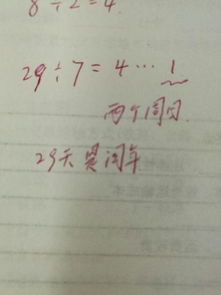 8÷2=4.
29÷7=4…1
两个周日.
29天是闰年